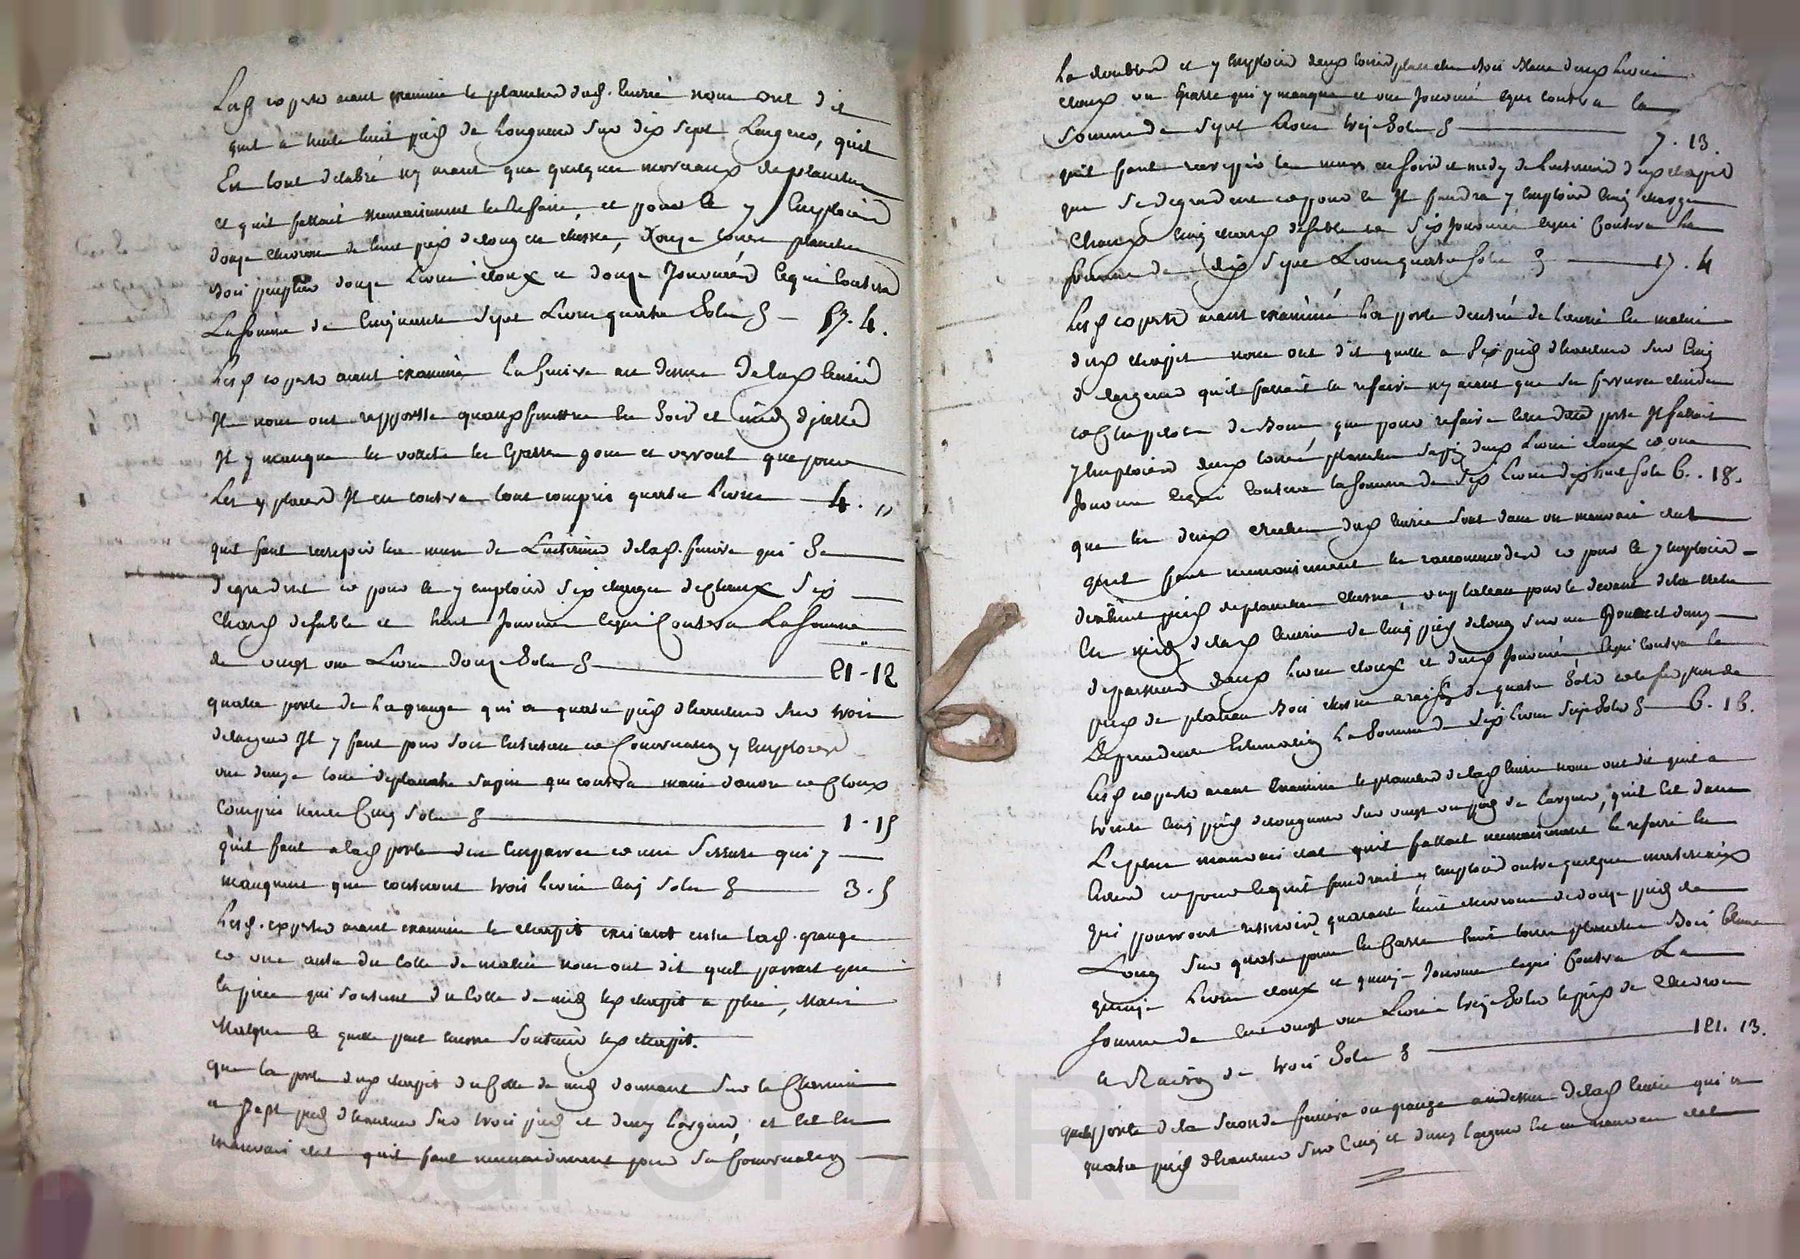 Lesd experts aiant examiné le plancher dud. écurie nous ont dit
quil a trente huit pieds de longueur sur dix sept largeur, quil
Est tout délabré ny aiant que quelques morceaux de planches
et quil fallait necessairement le refaire, et pour ce y Emploier
douze chevrons de huit pieds de long en chesne, douze toises planches
bois peuplier douze Livres cloux et douze Journées ce qui coutera
La somme de Cinquante Sept Livres quatre Sols 57. 4.
Lesd experts aiant examiné La feniere au dessus de lad écurie
Il nous ont rapporté quaux fenestres du soir et midy dicelle
Il y manque les volets les Epares gons et verroul que pour
Les y placer Il en coutera tout compris quatre Livres 4. "
quil faut recrepir les murs de Linterieur de lad. feniere qui Se
degradent et pour ce y emploier Six charges de Chaux Six
Chars de sable et huit Journées ce qui Coutera La Somme
de vingt une Livres douze Sols 21-12
quatre porte de La grange qui a quatre pieds d'hauteur sur trois
de largeur Il y faut pour son Entretien et Conservation y Emploier
une demye toise de planche sapin qui coutera main d'œuvre et Cloux
Compris trente Cinq Sols 1-15
quil faut a lad porte deux Emparres et une Serrure qui y
manquent que couteront trois Livres Cinq Sols 3.5
Lesd. experts aiant examiné le chapit existant entre lad. grange
et une autre du Cotté de matin nous ont dit quil parrait que
la piece qui soutient du Cotté de midy led chapit a plié, Mais
Malgré ce quelle peut encore Soutenir led chapit.
que la porte dud chapit du Cotté de midy donnant sur le Chemin
a Sept pieds d'hauteur sur trois pieds et demy largeur, et est en
mauvais etat quil faut necessairement pour sa Conservation
La doubler et y Emploier deux toises planches bois blanc deux Livres
cloux un Eparre qui y manque et une Journée ce qui coutera la
Somme de Sept Livres treize Sols 7. 13.
quil faut recrepir les murs au soir et midy de Linterieur dud chapit
que se degradent et pour ce Il faudra y Emploier Cinq charges
Chaux Cinq chars de sable et Six Journées ce qui Coutera La
somme de dix Sept Livres quatre Sols 17. 4
Lesd experts aiant examiné La porte d'entrée de L'écurie du matin
dud chapit nous ont dit quelle a Six pieds d'hauteur sur Cinq
de largeur quil fallait la refaire ny aiant que sa ferrure
que pour refaire porte Il fallait
y Emploier deux toises planches sapin deux Livres cloux et une
Journée ce qui coutera la somme de Six Livres dix huit sols 6. 18.
que les deux creches dud écurie sont dans un mauvais etat
quil faut necessairement les raccommoder et pour ce y Emploier
pieds de planches chesne, un plateau pour le devant de la creche
du midy de lad écurie de Cinq pieds de long sur un pouce et demy
d'epaisseur deux Livres cloux et deux Journées ce qui coutera le
pied de plateau bois chesne a raison de quatre Sols
La Somme de Six Livres Seize Sols 6. 16.
Lesd experts aiant Examiné le plancher de lad écurie nous ont dit quil a
trente Cinq pieds de longueur sur vingt un pieds de largeur, quil est dans
Le plus mauvais etat quil fallait necessairement le refaire en
Entier et pour ce quil faudrait y Emploier outre quelques materiaux
qui pourront resservir, quarante huit chevrons de douze pieds de
Long sur quatre pouces huit toises planches Bois blanc
quinze Livres cloux et quinze Journées ce qui Coutera La
somme de Cent vingt une Livres treize Sols le pied de chevron
a Raison de trois Sols 121. 13.
quela porte de la Seconde feniere ou grange au dessus de lad écurie qui a
quatre pieds d'hauteur sur Cinq et demy largeur est en mauvais etat